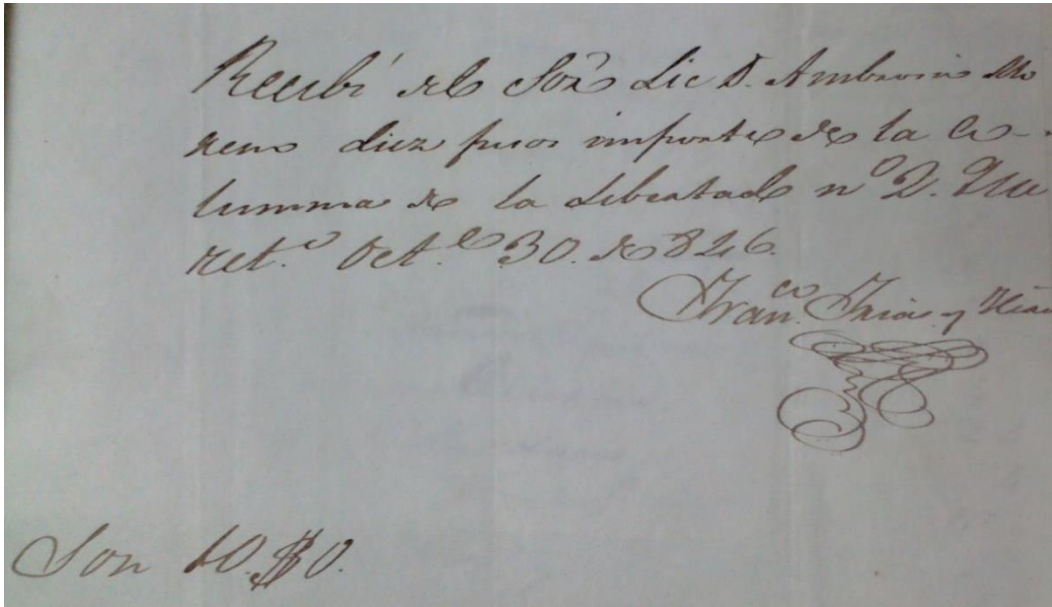 Recibí del Sor Lic D. Ambrosio Mo
reno diez pesos importe de la Co-
lumna de la Libertad nº 2. Que
retº Octe 30. de 826.
Franco. Frias y
Son 10.$0.